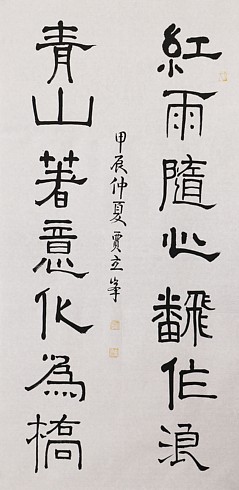 紅雨隨心翻作浪
青山著意化為橋
甲辰仲夏賈立峯